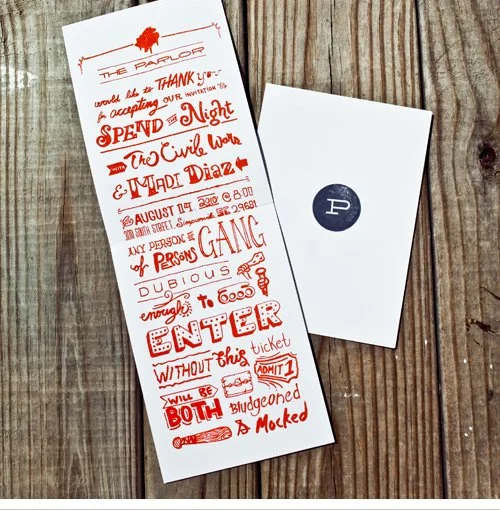 THE PARLOR
would like to THANK you
for accepting OUR INVITATION to
SPEND THE Night
WITH The Civil Wars
& MADI DiaZ
AUGUST 14, 2010 @ 8:00
SOUTH STREET, Simpsonville, SC 29681
ANY PERSON or
of PERSONS GANG
DUBIOUS
enough to
ENTER
WITHOUT this ticket
ADMIT 1
WILL BE
BOTH Bludgeoned
& Mocked
P